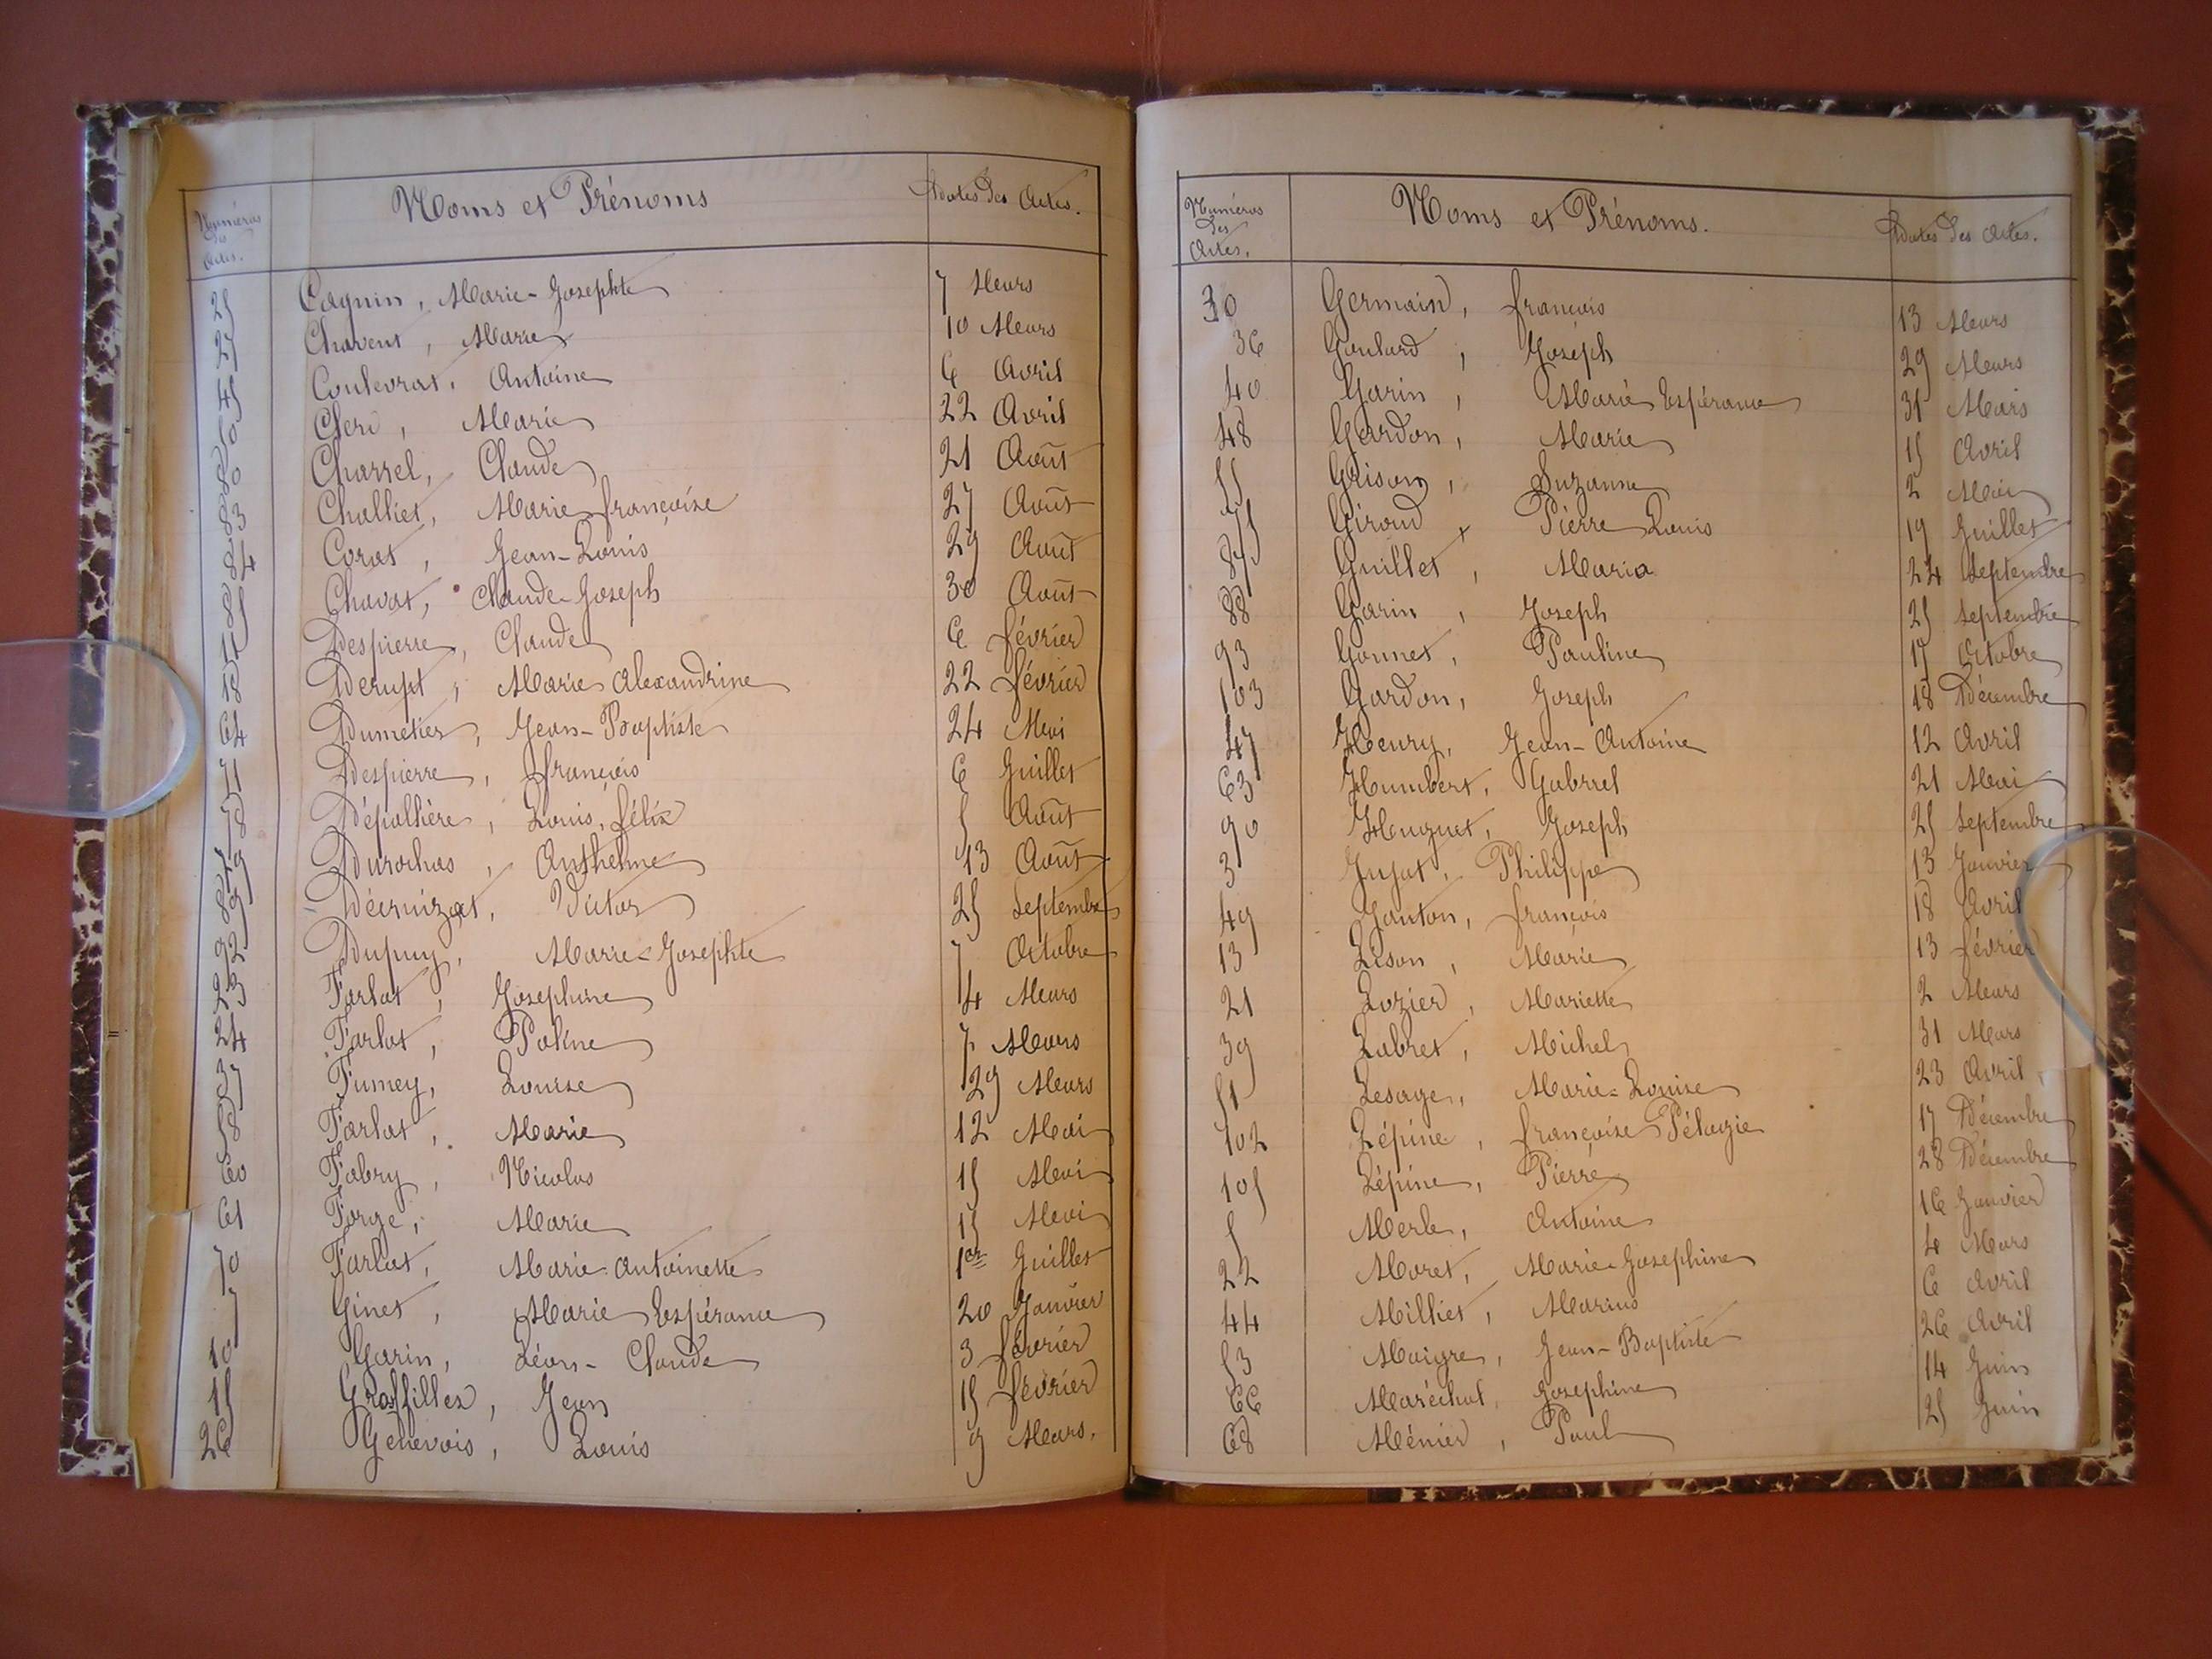 Numéros des Actes. Noms et Prénoms Dates des Actes.
25 Cagnin, Marie-Josephte 7 Mars
27 Chavent, Marie 10 Mars
45 Coulevrat, Antoine 6 Avril
50 Clerd, Marie 22 Avril
80 Charrel, Claude 21 Août
83 Challiet, Marie françoise 27 Août
84 Corat, Jean-Louis 29 Août
85 Chavat, Claude-Joseph 30 Août
11 Despierre, Claude 6 février
18 Derupt, Marie Alexandrine 22 février
64 Dumetier, Jean-Baptiste 24 Mai
71 Despierre, françois 6 Juillet
78 Dépallière, Louis, félix 5 Août
79 Durochas, Anthelme 13 Août
89 Décruizat, Victor 25 Septembre
92 Dupuy, Marie-Josephte 7 Octobre
23 Farlat, Josephine 4 Mars
24 Farlat, Poline 7 Mars
37 Fumey, Louise 29 Mars
58 Farlat, Marie 12 Mai
60 Fabry, Nicolas 15 Mai
61 Forge, Marie 15 Mai
70 Farlat, Marie Antoinette 1er Juillet
7 Ginet, Marie Espérance 20 Janvier
10 Garin, Léon-Claude 3 février
15 Graffillex, Jean 15 février
26 Genevois, Louis 9 Mars.
Numéros des Actes. Noms et Prénoms. Dates des Actes.
30 Germain, françois 13 Mars
36 Goulard, Joseph 29 Mars
40 Garin, Marie Espérance 31 Mars
48 Gardon, Marie 15 Avril
55 Grison, Suzanne 2 Mai
75 Giroud, Pierre Louis 19 Juillet
87 Guillet, Maria 24 Septembre
88 Garin, Joseph 25 septembre
93 Gonnet, Pauline 17 Octobre
103 Gardon, Joseph 18 Décembre
47 Henry, Jean-Antoine 12 Avril
63 Humbert, Gabriel 21 Mai
90 Huguet, Joseph 25 Septembre
3 Jujat, Philippe 13 Janvier
49 Janton, françois 18 Avril
13 Lison, Marie 13 février
21 Lozier, Mariette 2 Mars
39 Labret, Michel 31 Mars
51 Lesage, Marie-Louise 23 Avril
102 Lépine, françoise Pélagie 17 Décembre
105 Lépine, Pierre 28 Décembre
5 Merle, Antoine 16 Janvier
22 Moret, Marie-Josephine 4 Mars
44 Milliet, Marius 6 Avril
53 Maigre, Jean-Baptiste 26 Avril
66 Maréchal, Josephine 14 Juin
68 Ménier, Paul 25 Juin